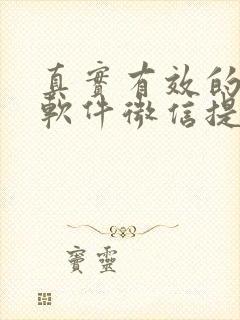 真實有效的
軟件微信提
寶靈